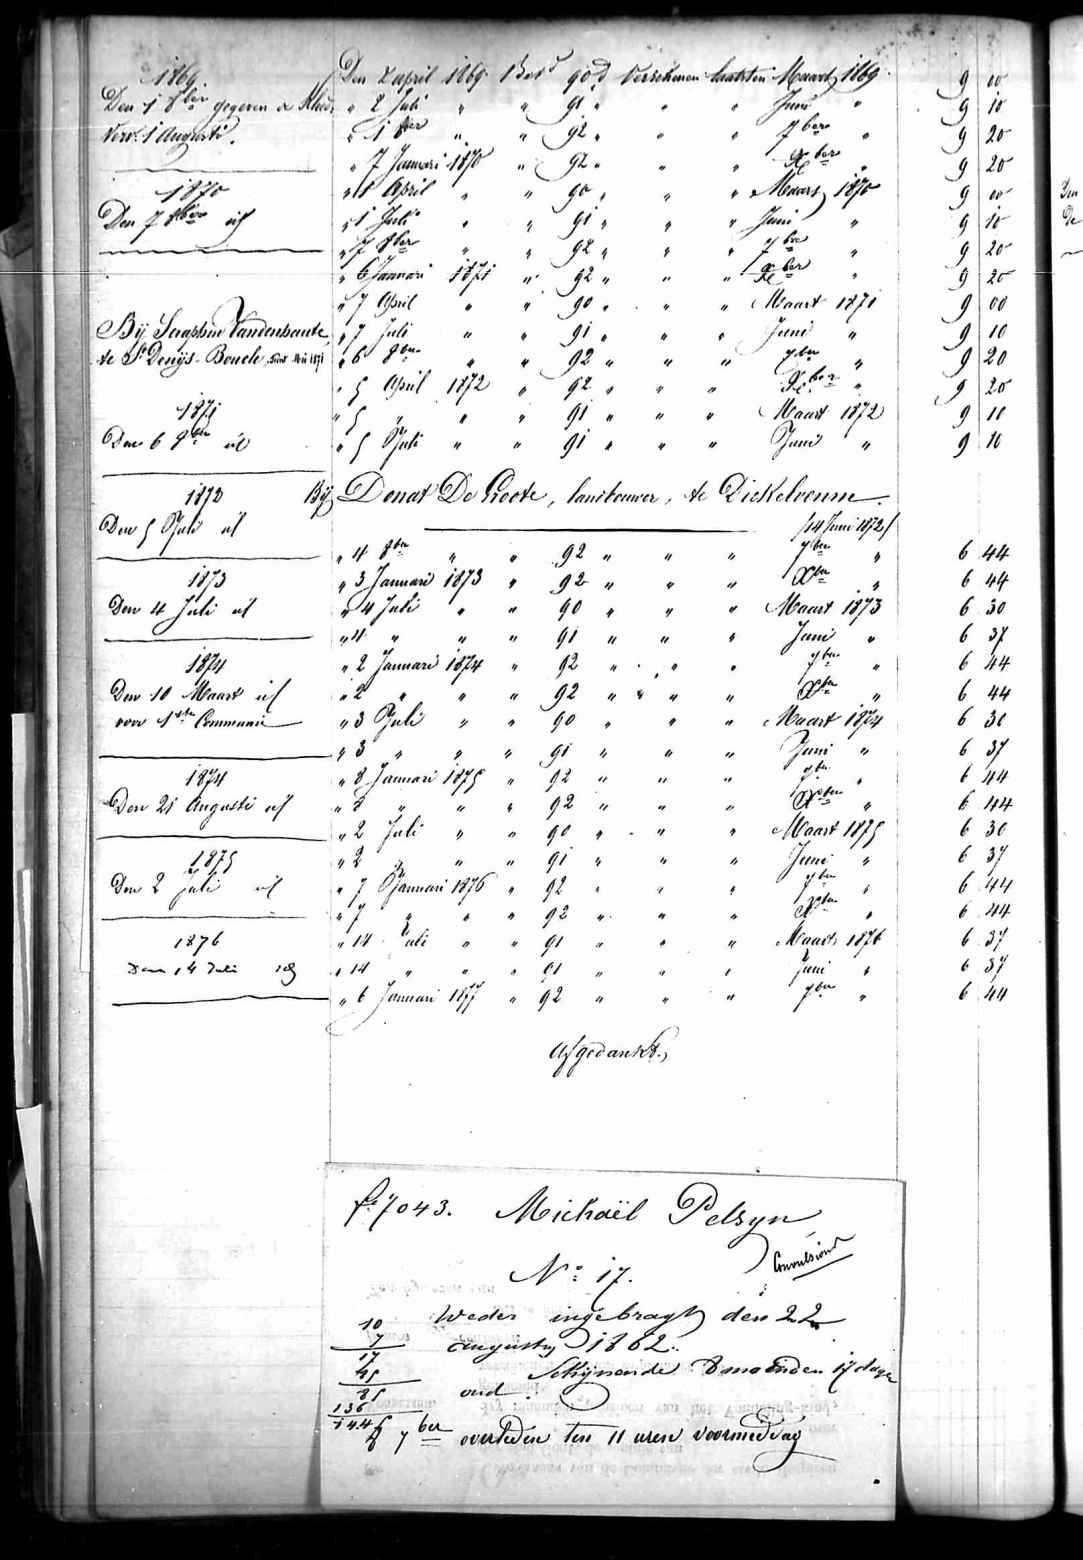 1869
Den 1 8ber gegeven
Verv. 1 Augusti.
1870
Den 7 8ber id
Bij Seraphin Vandenhaute,
te St Denijs-Boucle, sint Mei 1871
1871
Den 6 8ber id
1872
Den 5 Juli id
1873
Den 4 Juli id
1874
Den 10 Maart id
voor 1ste Communie
1874
Den 21 Augusti id
1875
Den 2 Juli id
1876
Den 14 Juli id
Den 2 april 1869 90 d Verschenen laatsten Maart 1869 9 00
" 2 Juli " " 91 " " " Juni " 9 10
" 1 8ber " " 92 " " " 7ber " 9 20
" 7 Januari 1870 " 92 " " " Xber " 9 20
" 1 April " " 90 " " " Maart 1870 9 00
" 1 Juli " " 91 " " " Juni " 9 10
" 7 8ber " " 92 " " " 7ber " 9 20
" 6 Januari 1871 " 92 " " " Xber " 9 20
" 7 April " " 90 " " " Maart 1871 9 00
" 7 Juli " " 91 " " " Juni " 9 10
" 6 8ber " " 92 " " " 7ber " 9 20
" 5 April 1872 " 92 " " " Xber " 9 20
" 5 " " " 91 " " " Maart 1872 9 10
" 5 Juli " " 91 " " " Juni " 9 10
Bij Donat De Groote, landbouwer, te Dickelvenne
/14 Juni 1872/
" 4 8ber " " 92 " " " 7ber " 6 44
" 3 Januari 1873 " 92 " " " Xber " 6 44
" 4 Juli " " 90 " " " Maart 1873 6 30
" 4 " " " 91 " " " Juni " 6 37
" 2 Januari 1874 " 92 " " " 7ber " 6 44
" 2 " " " 92 " " " Xber " 6 44
" 3 Juli " " 90 " " " Maart 1874 6 30
" 3 " " " 91 " " " Juni " 6 37
" 8 Januari 1875 " 92 " " " 7ber " 6 44
" 8 " " " 92 " " " Xber " 6 44
" 2 Juli " " 90 " " " Maart 1875 6 30
" 2 " " " 91 " " " Juni " 6 37
" 7 Januari 1876 " 92 " " " 7ber " 6 44
" 7 " " " 92 " " " Xber " 6 44
" 14 Juli " " 91 " " " Maart 1876 6 37
" 14 " " " 91 " " " Juni " 6 37
" 6 Januari 1877 " 92 " " " 7ber " 6 44
Afgedankt.
fo 7043. Michaël Pelsyn
Convulsions
No 17.
Weder ingebragt den 22
augusty 1862.
Schijnende 8 maenden 17 dagen
oud.
10
7
17
136
144
8 7ber overleden ten 11 uren voormiddag